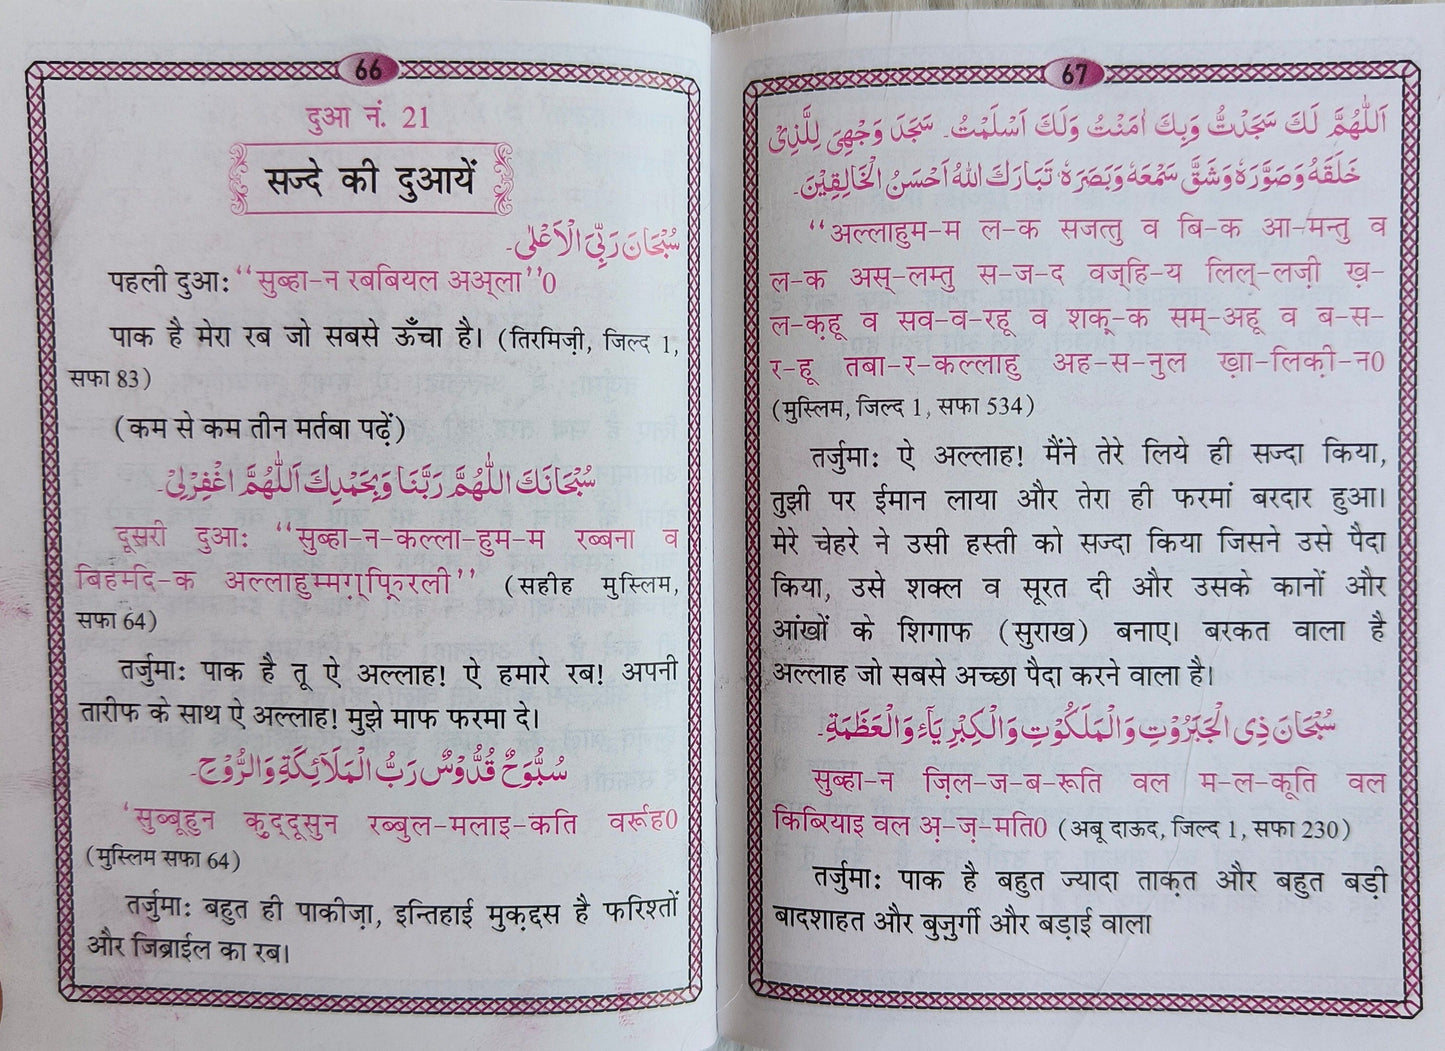 66
दुआ नं. 21
सज्दे की दुआयें
سُبْحَانَ رَبِّیَ الْاَعْلٰی۔
पहली दुआः ‘‘सुब्हा-न रबबियल अअ्ला’’0
पाक है मेरा रब जो सबसे ऊँचा है। (तिरमिज़ी, जिल्द 1,
सफा 83)
(कम से कम तीन मर्तबा पढ़ें)
سُبْحَانَكَ اللّٰهُمَّ رَبَّنَا وَبِحَمْدِكَ اَللّٰهُمَّ اغْفِرْلِیْ۔
दूसरी दुआः ‘‘सुब्हा-न-कल्ला-हुम-म रब्बना व
बिहमदि-क अल्लाहुम्मग़्फ़िरली’’ (सहीह मुस्लिम,
सफा 64)
तर्जुमाः पाक है तू ऐ अल्लाह! ऐ हमारे रब! अपनी
तारीफ के साथ ऐ अल्लाह! मुझे माफ फरमा दे।
سُبُّوحٌ قُدُّوْسٌ رَبُّ الْمَلَائِكَةِ وَالرُّوْحِ۔
‘सुब्बूहुन कुद्दूसुन रब्बुल-मलाइ-कति वर्रूह0
(मुस्लिम सफा 64)
तर्जुमाः बहुत ही पाकीज़ा, इन्तिहाई मुक़द्दस है फरिश्तों
और जिब्राईल का रब।
67
اَللّٰهُمَّ لَكَ سَجَدْتُّ وَبِكَ اٰمَنْتُ وَلَكَ اَسْلَمْتُ۔ سَجَدَ وَجْهِیَ لِلَّذِیْ
خَلَقَهُ وَصَوَّرَهٗ وَشَقَّ سَمْعَهٗ وَبَصَرَهٗ تَبَارَكَ اللّٰهُ اَحْسَنُ الْخَالِقِيْنَ۔
‘‘अल्लाहुम-म ल-क सजत्तु व बि-क आ-मन्तु व
ल-क अस्-लम्तु स-ज-द वज्हि-य लिल्-लज़ी ख़-
ल-क़हू व सव-व-रहू व शक़्-क सम्-अहू व ब-स-
र-हू तबा-र-कल्लाहु अह-स-नुल ख़ा-लिक़ी-न0
(मुस्लिम, जिल्द 1, सफा 534)
तर्जुमाः ऐ अल्लाह! मैंने तेरे लिये ही सज्दा किया,
तुझी पर ईमान लाया और तेरा ही फरमां बरदार हुआ।
मेरे चेहरे ने उसी हस्ती को सज्दा किया जिसने उसे पैदा
किया, उसे शक्ल व सूरत दी और उसके कानों और
आंखों के शिगाफ (सुराख) बनाए। बरकत वाला है
अल्लाह जो सबसे अच्छा पैदा करने वाला है।
سُبْحَانَ ذِی الْجَبَرُوْتِ وَالْمَلَكُوْتِ وَالْكِبْرِيَآءِ وَالْعَظَمَةِ۔
सुब्हा-न ज़िल-ज-ब-रूति वल म-ल-कूति वल
किब्रियाइ वल अ़-ज़-मति0 (अबू दाऊद, जिल्द 1, सफा 230)
तर्जुमाः पाक है बहुत ज्यादा ताक़त और बहुत बड़ी
बादशाहत और बुजुर्गी और बड़ाई वाला